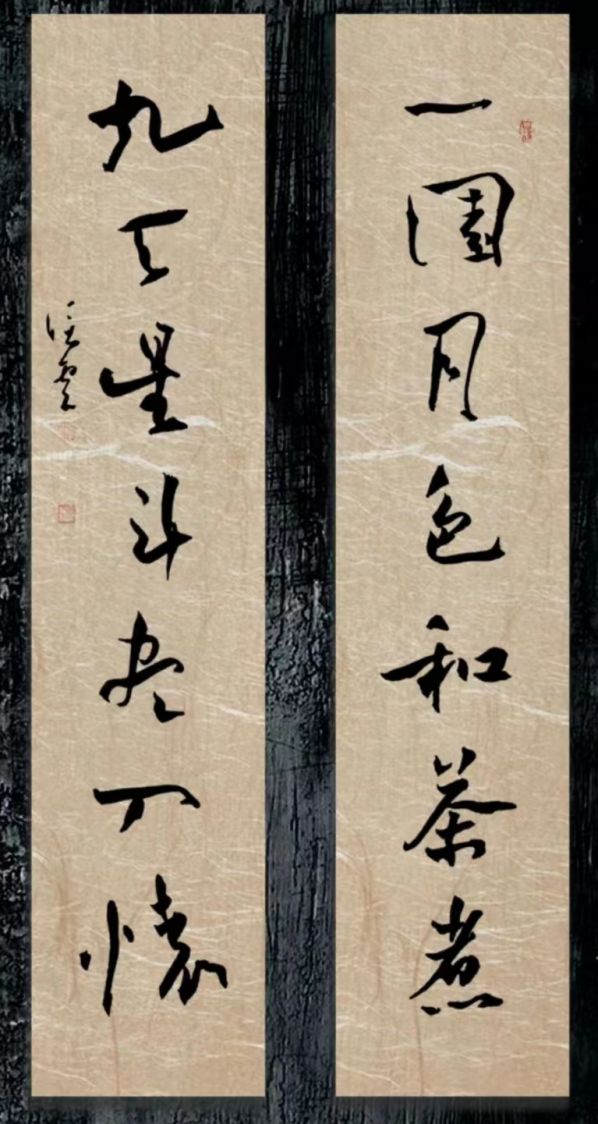 一園月色和茶煮
九天星斗尽入懷